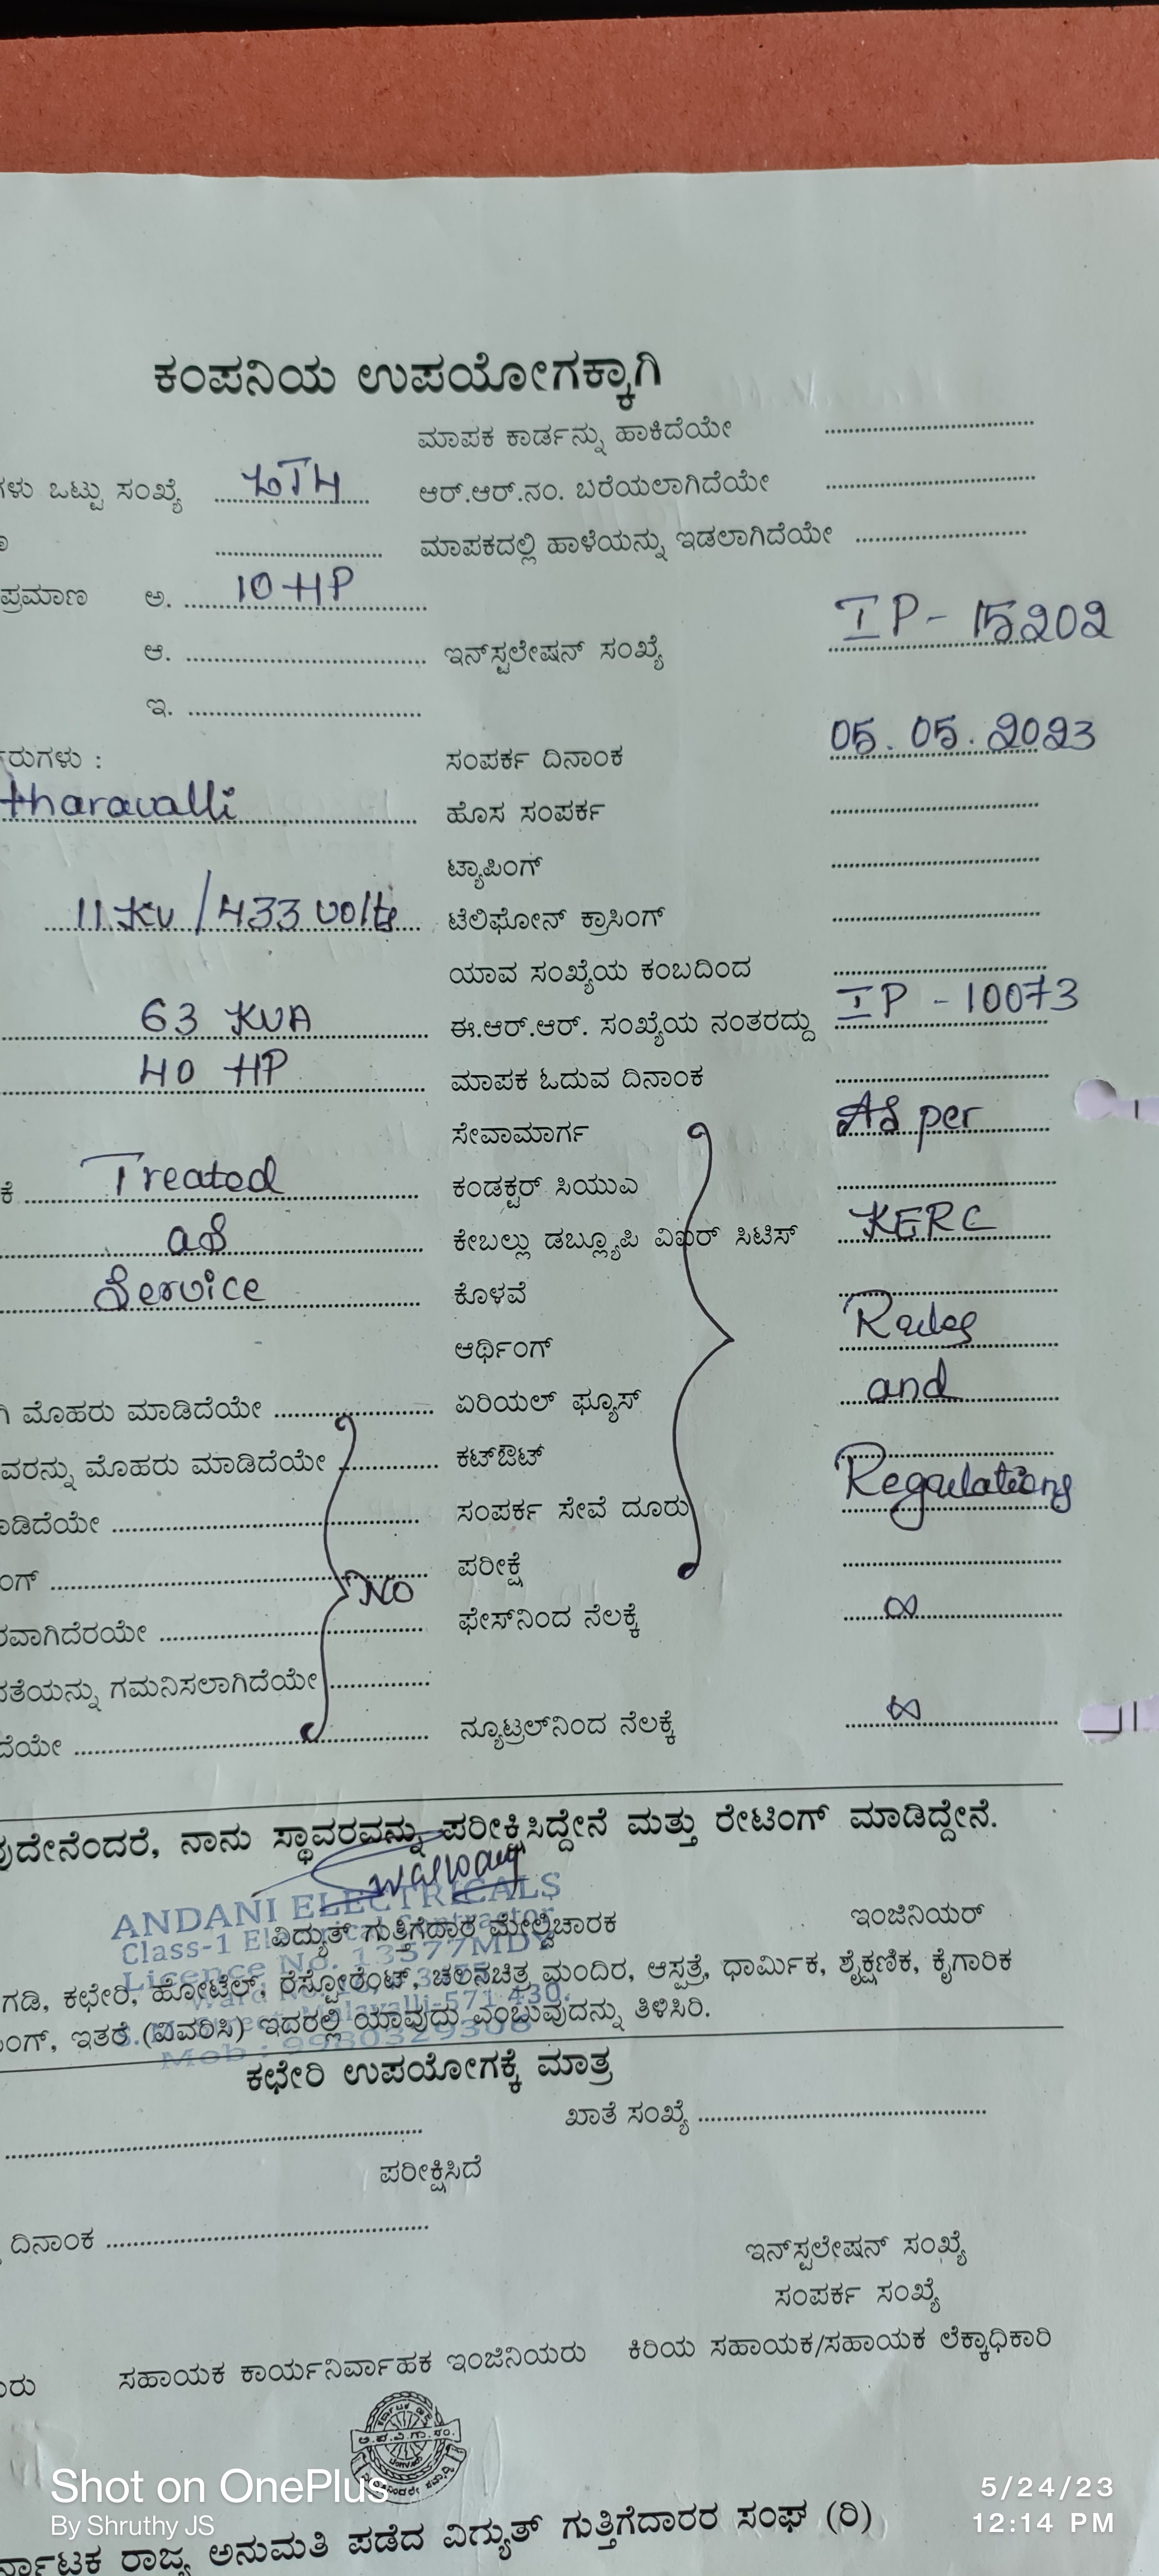 ಕಂಪನಿಯ ಉಪಯೋಗಕ್ಕಾಗಿ
ಮಾಪಕ ಕಾರ್ಡನ್ನು ಹಾಕಿದೆಯೇ
ಗಳು ಒಟ್ಟು ಸಂಖ್ಯೆ
ಆರ್.ಆರ್.ನಂ. ಬರೆಯಲಾಗಿದೆಯೇ
ಮಾಪಕದಲ್ಲಿ ಹಾಳೆಯನ್ನು ಇಡಲಾಗಿದೆಯೇ
ಪ್ರಮಾಣ ಅ. 10 HP
ಆ. ಇನ್‌ಸ್ಟಲೇಷನ್ ಸಂಖ್ಯೆ IP - 15202
ಇ.
ರುಗಳು : ಸಂಪರ್ಕ ದಿನಾಂಕ 05.05.2023
tharavalli ಹೊಸ ಸಂಪರ್ಕ
ಟ್ಯಾಪಿಂಗ್
11 KV / 433 volts ಟೆಲಿಫೋನ್ ಕ್ರಾಸಿಂಗ್
ಯಾವ ಸಂಖ್ಯೆಯ ಕಂಬದಿಂದ
63 KVA ಈ.ಆರ್.ಆರ್. ಸಂಖ್ಯೆಯ ನಂತರದ್ದು IP - 10073
40 HP ಮಾಪಕ ಓದುವ ದಿನಾಂಕ
ಸೇವಾಮಾರ್ಗ As per
ಕೆ Treated ಕಂಡಕ್ಟರ್ ಸಿಯುಎ
as ಕೇಬಲ್ಲು ಡಬ್ಲ್ಯೂಪಿ ವಿಐರ್ ಸಿಟಿಸ್ KERC
Service ಕೊಳವೆ
ಆರ್ಥಿಂಗ್ Rules
ಮೊಹರು ಮಾಡಿದೆಯೇ ಏರಿಯಲ್ ಫ್ಯೂಸ್ and
ವರನ್ನು ಮೊಹರು ಮಾಡಿದೆಯೇ ಕಟ್‌ಔಟ್
ಾಡಿದೆಯೇ ಸಂಪರ್ಕ ಸೇವೆ ದೂರು Regulations
ಂಗ್ NO ಪರೀಕ್ಷೆ
ರವಾಗಿದೆರಯೇ ಫೇಸ್‌ನಿಂದ ನೆಲಕ್ಕೆ ∞
ತೆಯನ್ನು ಗಮನಿಸಲಾಗಿದೆಯೇ
ದೆಯೇ ನ್ಯೂಟ್ರಲ್‌ನಿಂದ ನೆಲಕ್ಕೆ ∞
ವುದೇನೆಂದರೆ, ನಾನು ಸ್ಥಾವರವನ್ನು ಪರೀಕ್ಷಿಸಿದ್ದೇನೆ ಮತ್ತು ರೇಟಿಂಗ್ ಮಾಡಿದ್ದೇನೆ.
ANDANI ELECTRICALS
Class-1 Electrical Contractor
ವಿದ್ಯುತ್ ಗುತ್ತಿಗೆದಾರ ಮೇಲ್ವಿಚಾರಕ ಇಂಜಿನಿಯರ್
Licence No. 13577MDY
ಗಡಿ, ಕಛೇರಿ, ಹೋಟೆಲ್, ರೆಸ್ಟೋರೆಂಟ್, ಚಲನಚಿತ್ರ ಮಂದಿರ, ಆಸ್ಪತ್ರೆ, ಧಾರ್ಮಿಕ, ಶೈಕ್ಷಣಿಕ, ಕೈಗಾರಿಕ
Malavalli-571 430.
ಂಗ್, ಇತರೆ (ವಿವರಿಸಿ) ಇದರಲ್ಲಿ ಯಾವುದು ಎಂಬುವುದನ್ನು ತಿಳಿಸಿರಿ.
Mob : 9980329308
ಕಛೇರಿ ಉಪಯೋಗಕ್ಕೆ ಮಾತ್ರ
ಖಾತೆ ಸಂಖ್ಯೆ
ಪರೀಕ್ಷಿಸಿದೆ
ದಿನಾಂಕ
ಇನ್‌ಸ್ಟಲೇಷನ್ ಸಂಖ್ಯೆ
ಸಂಪರ್ಕ ಸಂಖ್ಯೆ
ರು ಸಹಾಯಕ ಕಾರ್ಯನಿರ್ವಾಹಕ ಇಂಜಿನಿಯರು ಕಿರಿಯ ಸಹಾಯಕ/ಸಹಾಯಕ ಲೆಕ್ಕಾಧಿಕಾರಿ
ರ್ನಾಟಕ ರಾಜ್ಯ ಅನುಮತಿ ಪಡೆದ ವಿದ್ಯುತ್ ಗುತ್ತಿಗೆದಾರರ ಸಂಘ (ರಿ)
Shot on OnePlus
By Shruthy JS
5/24/23
12:14 PM